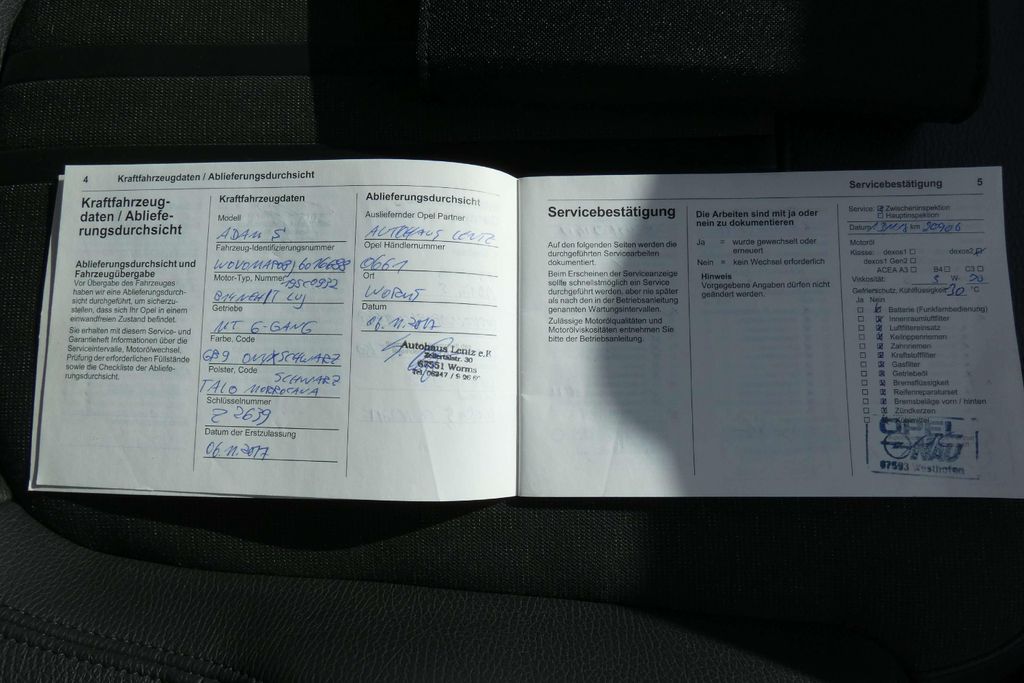 4 Kraftfahrzeugdaten / Ablieferungsdurchsicht
Kraftfahrzeug-
daten / Abliefe-
rungsdurchsicht
Ablieferungsdurchsicht und
Fahrzeugübergabe
Vor Übergabe des Fahrzeuges
haben wir eine Ablieferungsdurch-
sicht durchgeführt, um sicherzu-
stellen, dass sich Ihr Opel in einem
einwandfreien Zustand befindet.
Sie erhalten mit diesem Service- und
Garantieheft Informationen über die
Serviceintervalle, Motorölwechsel,
Prüfung der erforderlichen Füllstände
sowie die Checkliste der Abliefe-
rungsdurchsicht.
Kraftfahrzeugdaten
Modell
ADAM S
Fahrzeug-Identifizierungsnummer
Motor-Typ, Nummer
Getriebe
MT 6-GANG
Farbe, Code
GB9 ONYXSCHWARZ
Polster, Code
SCHWARZ
TALO MORROCANA
Schlüsselnummer
Z 2639
Datum der Erstzulassung
06.11.2017
Ablieferungsdurchsicht
Ausliefernder Opel Partner
AUTOHAUS LENTZ
Opel Händlernummer
0661
Ort
WORMS
Datum
06.11.2017
Autohaus Lentz e.K
Zellertalstr. 30
67551 Worms
Servicebestätigung 5
Servicebestätigung
Auf den folgenden Seiten werden die
durchgeführten Servicearbeiten
dokumentiert.
Beim Erscheinen der Serviceanzeige
sollte schnellstmöglich ein Service
durchgeführt werden, aber nie später
als nach den in der Betriebsanleitung
genannten Wartungsintervallen.
Zulässige Motorölqualitäten und
Motorölviskositäten entnehmen Sie
bitte der Betriebsanleitung.
Die Arbeiten sind mit ja oder
nein zu dokumentieren
Ja = wurde gewechselt oder
erneuert
Nein = kein Wechsel erforderlich
Hinweis
Vorgegebene Angaben dürfen nicht
geändert werden.
Service: Zwischeninspektion
Hauptinspektion
Datum km 20906
Motoröl
Klasse: dexos1 dexos2
dexos1 Gen2
ACEA A3 B4 C3
Viskosität: 5 W- 20
Gefrierschutz, Kühlflüssigkeit 30 °C
Ja Nein
Batterie (Funkfernbedienung)
Innenraumluftfilter
Luftfiltereinsatz
Keilrippenriemen
Zahnriemen
Kraftstofffilter
Gasfilter
Getriebeöl
Bremsflüssigkeit
Reifenreparaturset
Bremsbeläge vorn / hinten
Zündkerzen
OPEL
NAU
67593 Westhofen